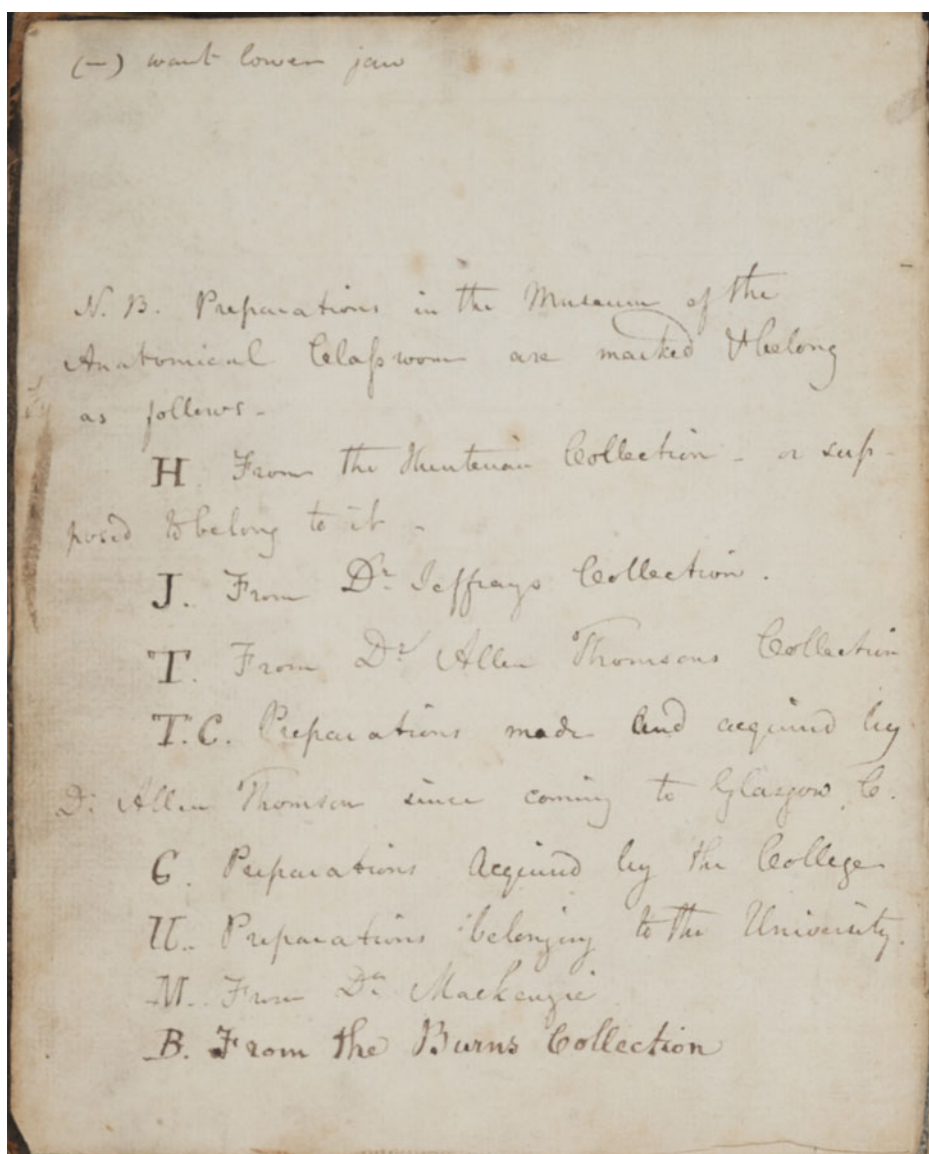 (-) want lower jaw
N. B. Preparations in the Museum of the
Anatomical Classroom are marked & belong
as follows -
H. From the Hunterian Collection - or sup-
posed to belong to it -
J. From Dr. Jeffrays Collection.
T. From Dr. Allen Thomsons Collection
T.C. Preparations made and acquired by
Dr. Allen Thomson since coming to Glasgow C.
C. Preparations Acquired by the College
U. Preparations belonging to the University.
M. From Dr. Mackenzie
B. From the Burns Collection